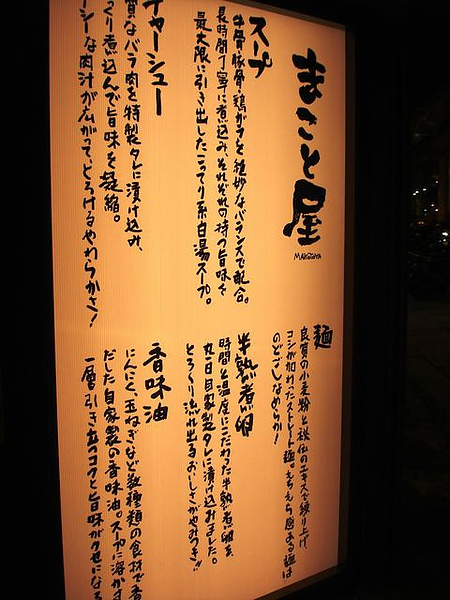 まこと屋
MAKOTOYA
スープ
牛骨豚骨・鶏ガラを絶妙なバランスで配合。
長時間丁寧に煮込み、それぞれの持つ旨味を
最大限に引き出したこってり系白湯スープ。
チャーシュー
質なバラ肉を特製タレに漬け込み、
っくり煮込んで旨味を凝縮。
ーシーな肉汁が広がって、とろけるやわらかさ!
麺
良質の小麦粉と秘伝のエキスで練り上げ
コシが加わったストレート麺。もちもち感ある麺は
のどごしなめらか!
半熟煮卵
時間と温度にこだわった半熟煮卵を、
丸一日自家製タレに漬け込みました。
とろりと流れ出るおいしさがやみつき!!
香味油
にんにく、玉ねぎなど数種類の食材で香
だした自家製の香味油。スープに溶かす
一層引き立つコクと旨味がクセになる